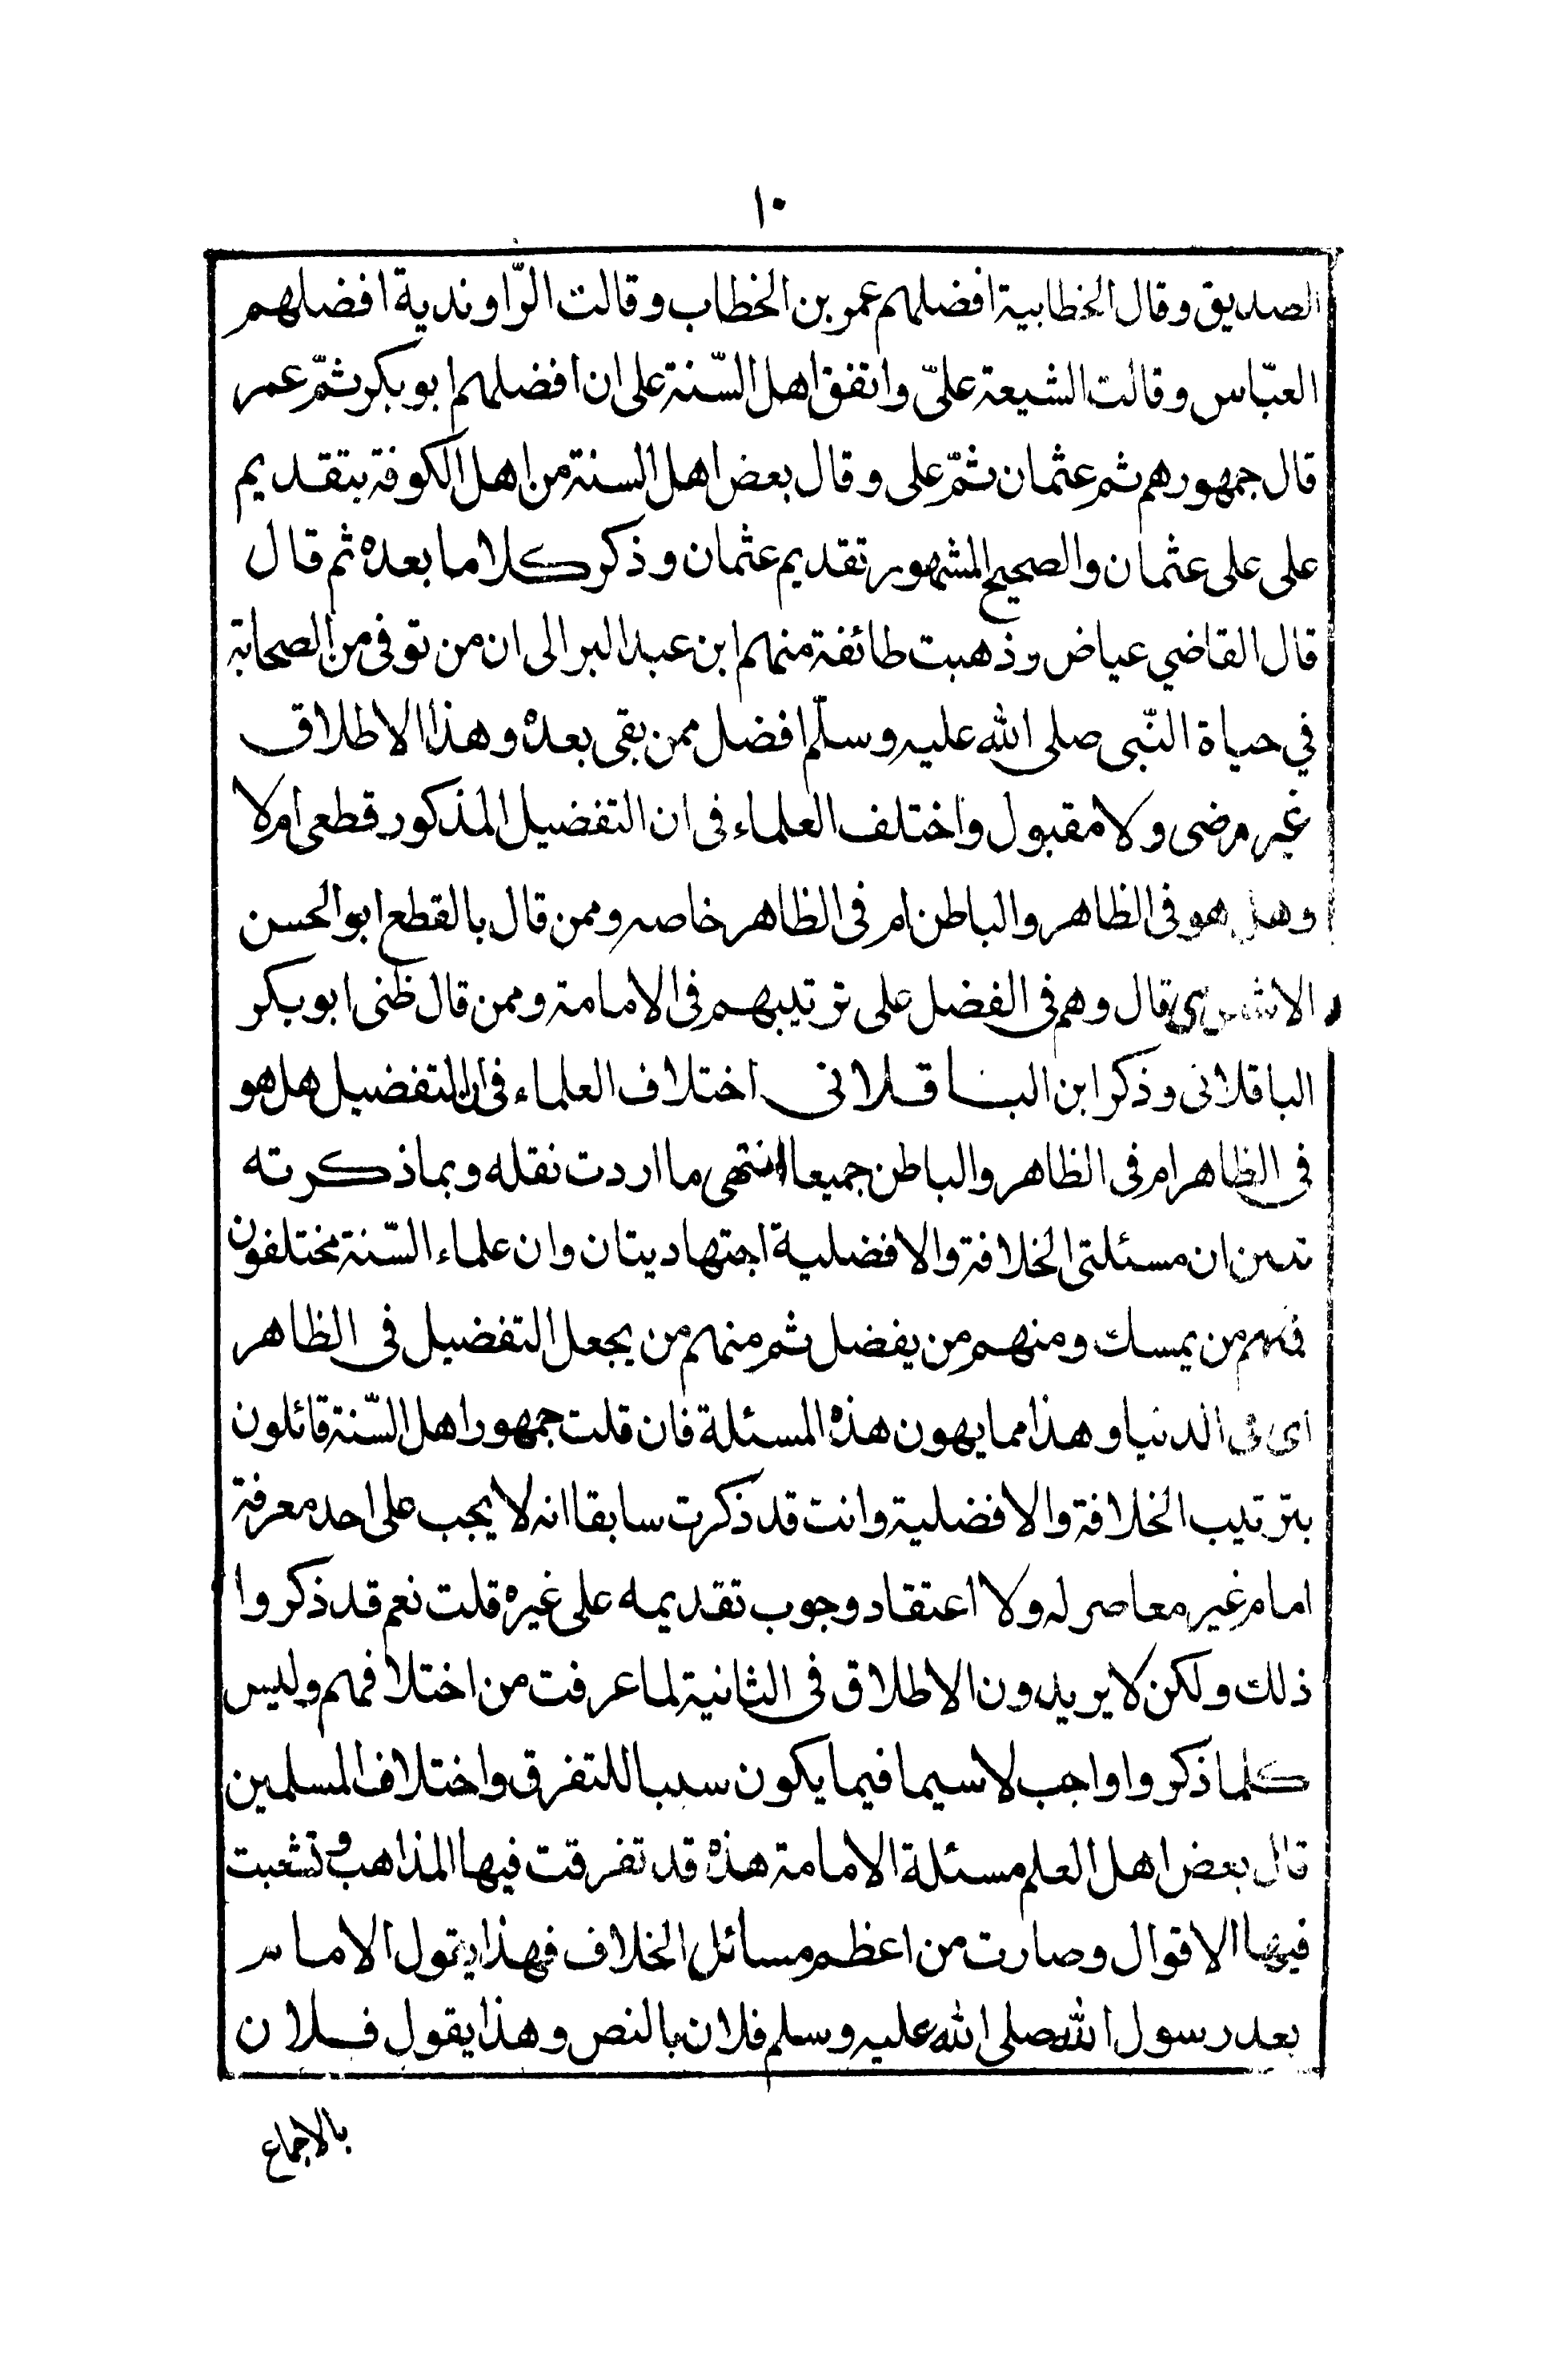 ١٠
الصديق وقال الخطابية افضلهم عمر بن الخطاب وقالت الرّاوندية افضلهم
العبّاس وقالت الشيعة علىّ واتفق اهل السّنة على ان افضلهم ابو بكر ثمّ عمر
قال جمهورهم ثم عثمان ثمّ على وقال بعض اهل السنة من اهل الكوفة بتقديم
على على عثمان والصحيح المشهور تقديم عثمان وذكر كلاما بعده ثم قال
قال القاضي عياض وذهبت طائفة منهم ابن عبد البر الى ان من توفى من الصحابة
في حياة النّبى صلى الله عليه وسلّم افضل ممن بقى بعده وهذا الاطلاق
غير مرضى ولا مقبول واختلف العلماء فى ان التفضيل المذكور قطعى ام لا
وهل هو فى الظاهر والباطن ام فى الظاهر خاصه وممن قال بالقطع ابو الحسن
الاشعرى قال وهم فى الفضل على ترتيبهم فى الامامة وممن قال ظنى ابو بكر
الباقلانى وذكر ابن الباقلانى اختلاف العلماء فى ان التفضيل هل هو
فى الظاهر ام فى الظاهر والباطن جميعا انتهى ما اردت نقله وبما ذكرته
تبين ان مسئلتى الخلافة والافضلية اجتهاديتان وان علماء السّنة مختلفون
فمنهم من يمسك ومنهم من يفضل ثم منهم من يجعل التفضيل فى الظاهر
اى فى الدنيا وهذا مما يهون هذه المسئلة فان قلت جمهور اهل السّنة قائلون
بترتيب الخلافة والافضلية وانت قد ذكرت سابقا انه لا يجب على احد معرفة
امام غير معاصر له ولا اعتقاد وجوب تقديمه على غيره قلت نعم قد ذكروا
ذلك ولكن لا يريدون الاطلاق فى الثانية لما عرفت من اختلافهم وليس
كلما ذكروا واجب لا سيما فيما يكون سببا للتفرق واختلاف المسلمين
قال بعض اهل العلم مسئلة الامامة هذه قد تفرقت فيها المذاهب وتشعبت
فيها الاقوال وصارت من اعظم مسائل الخلاف فهذا يقول الامام
بعد رسول الله صلى الله عليه وسلم فلان بالنص وهذا يقول فلان
بالاجماع